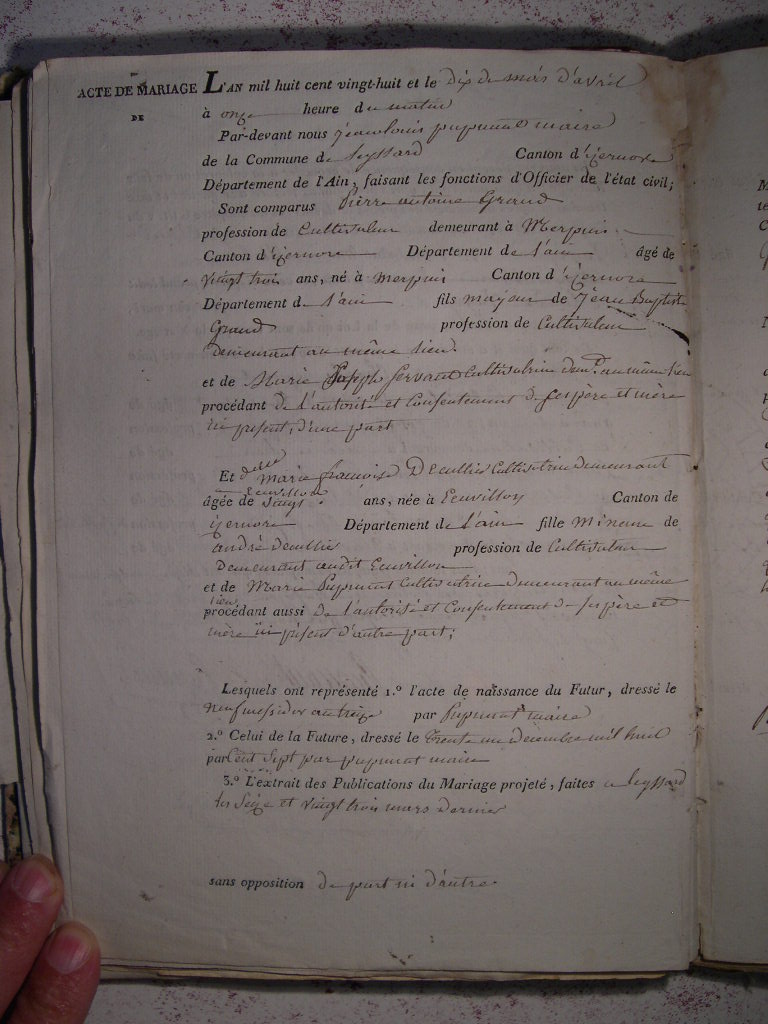 ACTE DE MARIAGE
DE
L'AN mil huit cent vingt-huit et le dix du mois d'avril
à onze heure du matin
Par-devant nous jean louis pupunat maire
de la Commune de leyssard Canton d'izernore
Département de l'Ain, faisant les fonctions d'Officier de l'état civil;
Sont comparus Pierre antoine Grand
profession de Cultivateur demeurant à Merpuis
Canton d'izernore Département de l'ain âgé de
vingt trois ans, né à merpuis Canton d'izernore
Département de l'ain fils majeur de Jean Baptiste
Grand profession de Cultivateur
demeurant au même lieu.
et de Marie Joseph servant Cultivatrice dem.t au même lieu
procédant de l'autorité et Consentement de ses père et mère
ici présent, d'une part
Et d.elle marie françoise Decullier Cultivatrice demeurant
Ecuvillon
âgée de vingt ans, née à Ecuvillon Canton de
izernore Département de l'ain fille Mineure de
andré decullier profession de Cultivateur
Demeurant audit Ecuvillon
et de Marie Pupunat Cultivatrice demeurant au même
lieu
procédant aussi de l'autorité et Consentement de ses père et
mère ici présent d'autre part;
Lesquels ont représenté 1.º l'acte de naissance du Futur, dressé le
neuf messidor an treize par Pupunat maire
2.º Celui de la Future, dressé le trente un décembre mil huit
par Cent sept par pupunat maire
3.º L'extrait des Publications du Mariage projeté, faites a leyssard
les Seize et vingt trois mars dernier
sans opposition de part ni d'autre.